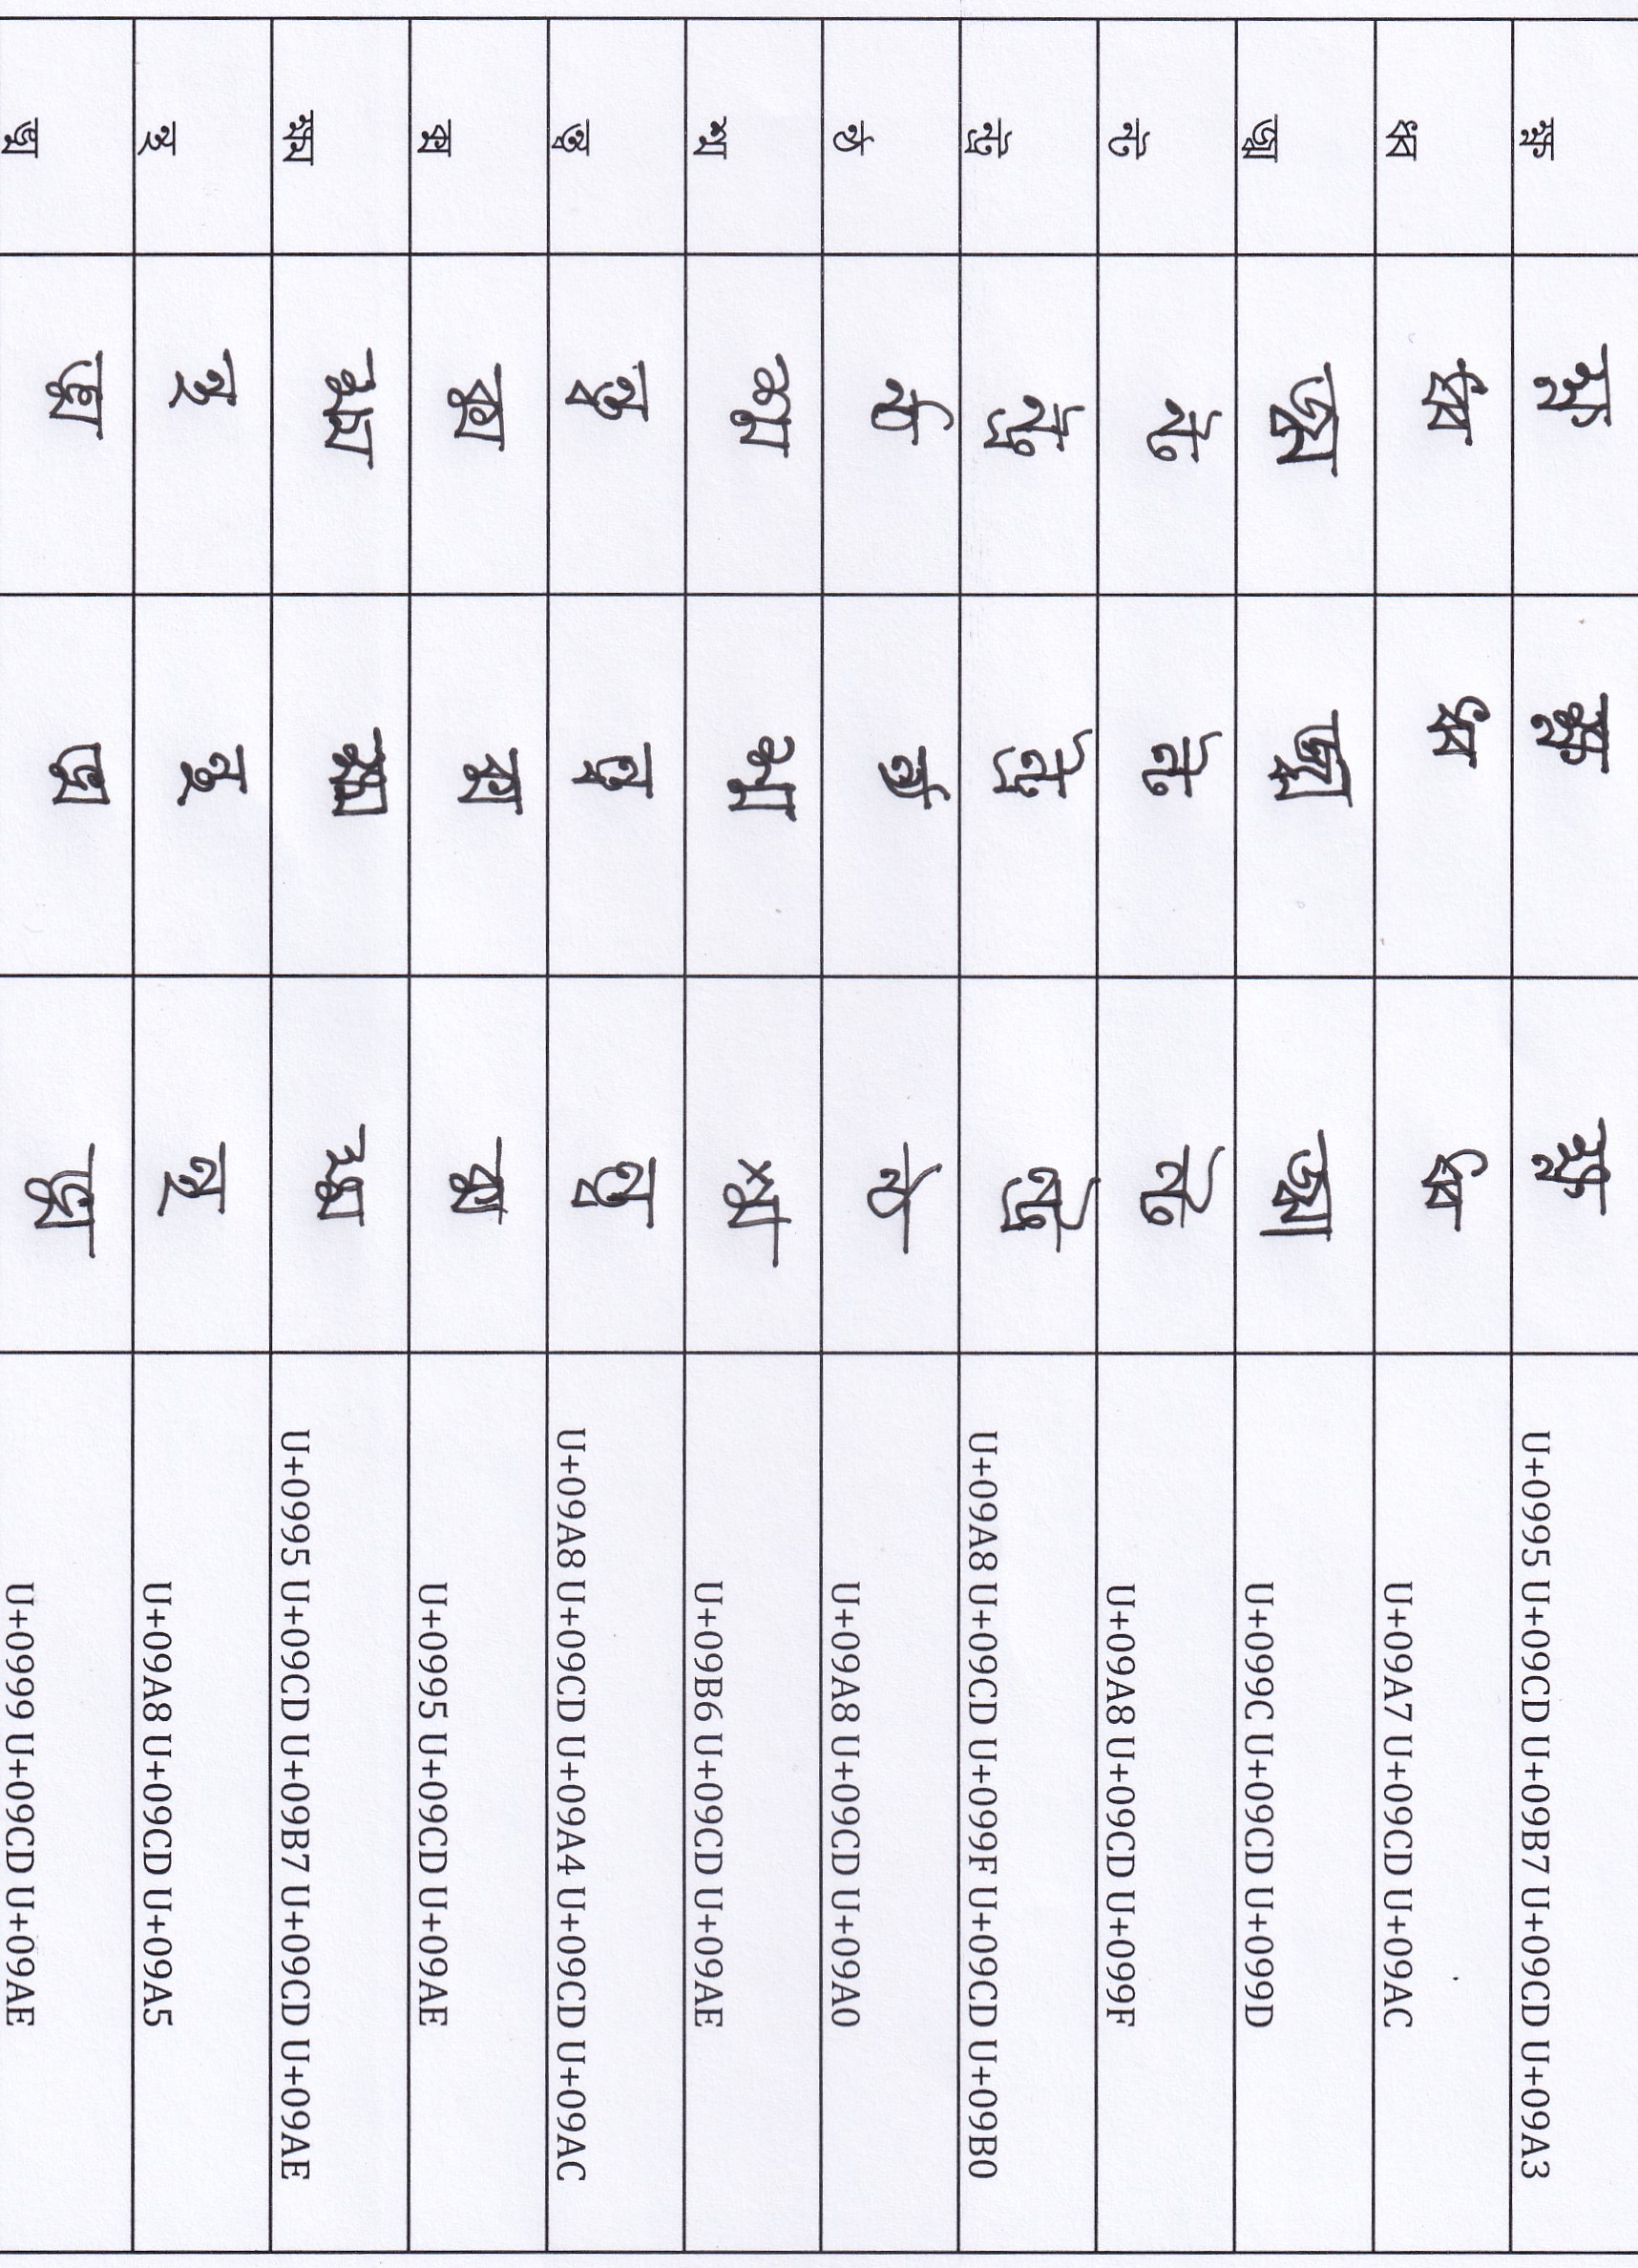 ক্ষ্ণ ক্ষ্ণ ক্ষ্ণ ক্ষ্ণ U+0995 U+09CD U+09B7 U+09CD U+09A3
ধ্ব ধ্ব ধ্ব ধ্ব U+09A7 U+09CD U+09AC
জ্ঝ জ্ঝ জ্ঝ জ্ঝ U+099C U+09CD U+099D
ন্ট ন্ট ন্ট ন্ট U+09A8 U+09CD U+099F
ন্ট্র ন্ট্র ন্ট্র ন্ট্র U+09A8 U+09CD U+099F U+09CD U+09B0
ন্ঠ ন্ঠ ন্ঠ ন্ঠ U+09A8 U+09CD U+09A0
শ্ম শ্ম শ্ম শ্ম U+09B6 U+09CD U+09AE
ন্ত্ব ন্ত্ব ন্ত্ব ন্ত্ব U+09A8 U+09CD U+09A4 U+09CD U+09AC
ক্ম ক্ম ক্ম ক্ম U+0995 U+09CD U+09AE
ক্ষ্ম ক্ষ্ম ক্ষ্ম ক্ষ্ম U+0995 U+09CD U+09B7 U+09CD U+09AE
ন্থ ন্থ ন্থ ন্থ U+09A8 U+09CD U+09A5
ঙ্ম ঙ্ম ঙ্ম ঙ্ম U+0999 U+09CD U+09AE